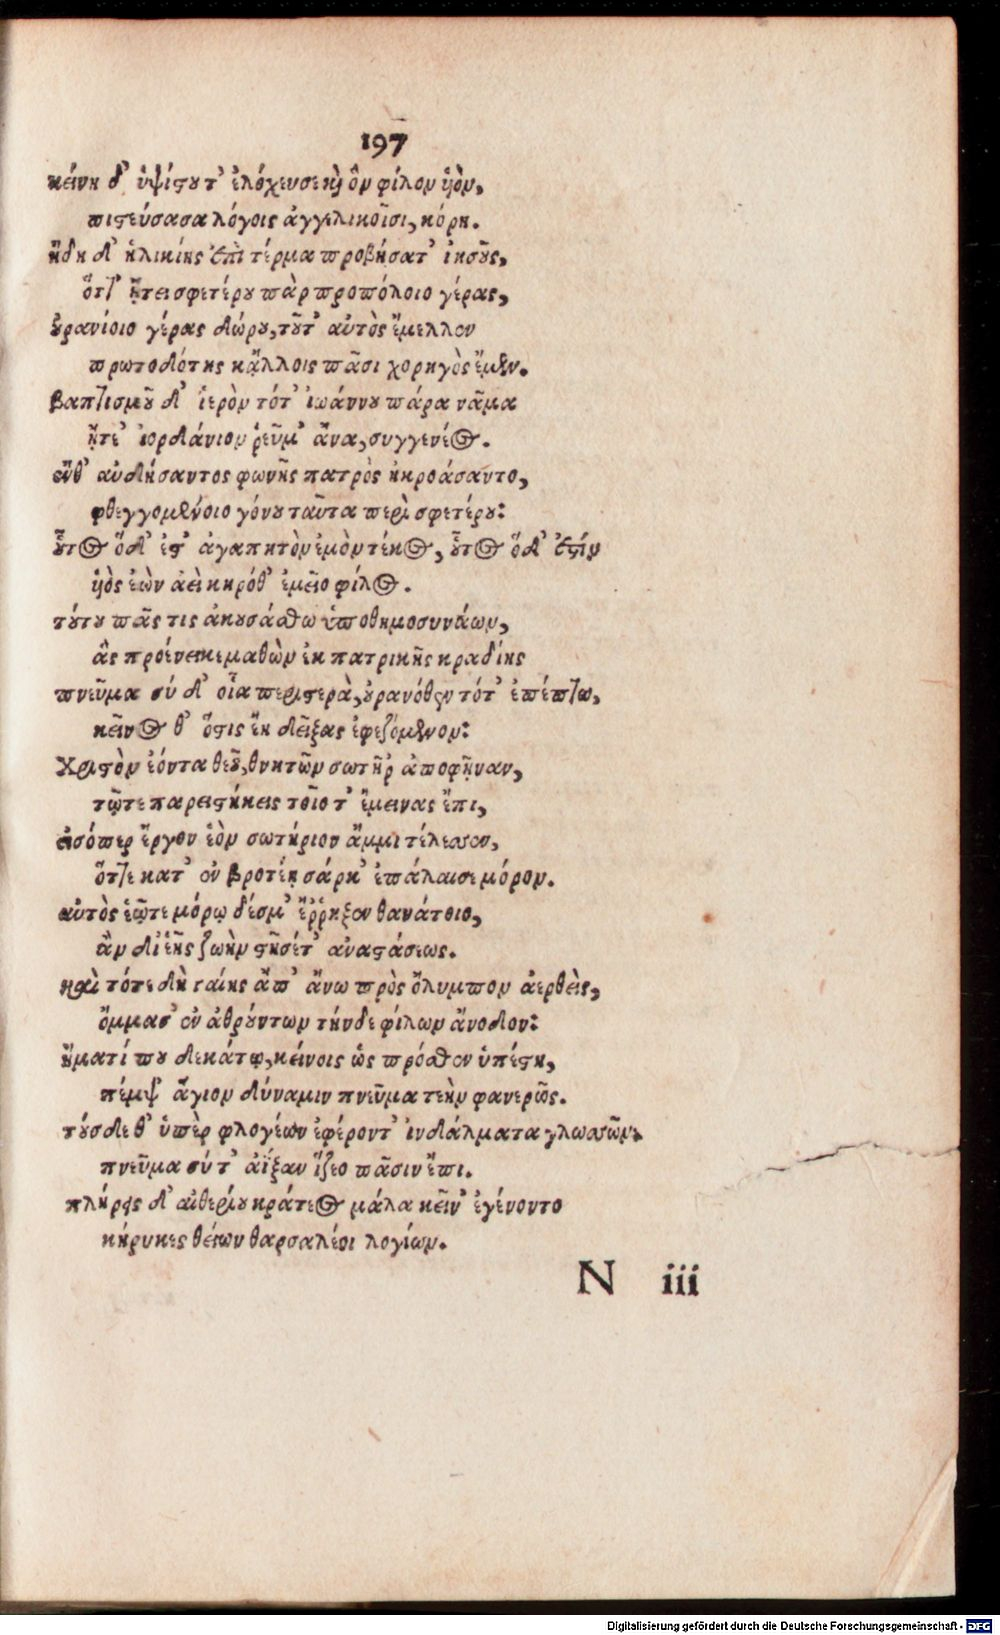 197
κείνη δ' ὑψίςου τ' ἐλόχευσε καὶ ὃν φίλον ὑιὸν,
πιςεύσασα λόγοις ἀγγελικοῖσι, κόρη.
ἤδη δ' ἡλικίης ἐπὶ τέρμα προβήσατ' ἰησοῦς,
ὅτζ' ᾔτει σφετέρου πὰρ προπόλοιο γέρας,
οὐρανίοιο γέρας δώρου, τοῦτ' αὐτὸς ἔμελλον
πρωτοδότης κᾄλλοις πᾶσι χορηγὸς ἔμεν.
βαπτισμοῦ δ' ἱερὸν τότ' ἰωάννου πάρα νᾶμα
ᾔτε' ἰορδάνιον ῥεῦμ' ἄνα, συγγενέος.
ἔνθ' αὐδήσαντος φωνῆς πατρὸς ἠκροάσαντο,
φθεγγομένοιο γόνου ταῦτα περὶ σφετέρου:
οὗτος ὅδ' ἐς' ἀγαπητὸν ἐμὸν τέκος, οὗτος ὅδ' ἐςὶν
ὑιὸς ἐὼν ἀεὶ κηρόθ' ἐμεῖο φίλος.
τούτου πᾶς τις ἀκουσάσθω ὑποθημοσυνάων,
ἃς προένεικε μαθὼν ἐκ πατρικῆς κραδίης
πνεῦμα σύ δ' οἷα περιςερὰ, οὐρανόθεν τότ' ἐπέπτω,
κεῖνος θ' ὅςις ἔη δεῖξας ἐφεζόμενον:
Χριςὸν ἐόντα θεοῦ, θνητῶν σωτῆρ' ἀποφῆναν,
τῷτε παρειςήκεις τοῖο τ' ἔμεινας ἔπι,
εἰσόπερ ἔργον ἑὸν σωτήριον ἄμμι τέλεσσεν,
ὅτζε κατ' ὃν βροτέῃ σάρκ' ἐπάλαισε μόρον.
αὐτὸς ἑῷτε μόρῳ δέσμ' ἔῤῥηξεν θανάτοιο,
ἂν δι' ἑῆς ζωὴν ςῆσέτ' ἀναςάσεως.
καὶ τότε δὴ γαίης ἄπ' ἄνω πρὸς ὄλυμπον ἀερθεὶς,
ὄμμασ' ἐν ἀθρούντων τήνδε φίλων ἄνοδον:
ἤματί που δεκάτῳ, κείνοις ὡς πρόσθεν ὑπέςη,
πέμψ' ἅγιον δύναμιν πνεῦμα τεὴν φανερῶς.
τούσδε θ' ὑπὲρ φλογέων ἐφέροντ' ἰνδάλματα γλωσσῶν,
πνεῦμα σύ τ' ἀΐξαν ἵζεο πᾶσιν ἔπι.
πλήρεες δ' αἰθερίου κράτεος μάλα κεῖν' ἐγένοντο
κήρυκες θείων θαρσαλέοι λογίων.
N iii
Digitalisierung gefördert durch die Deutsche Forschungsgemeinschaft - DFG